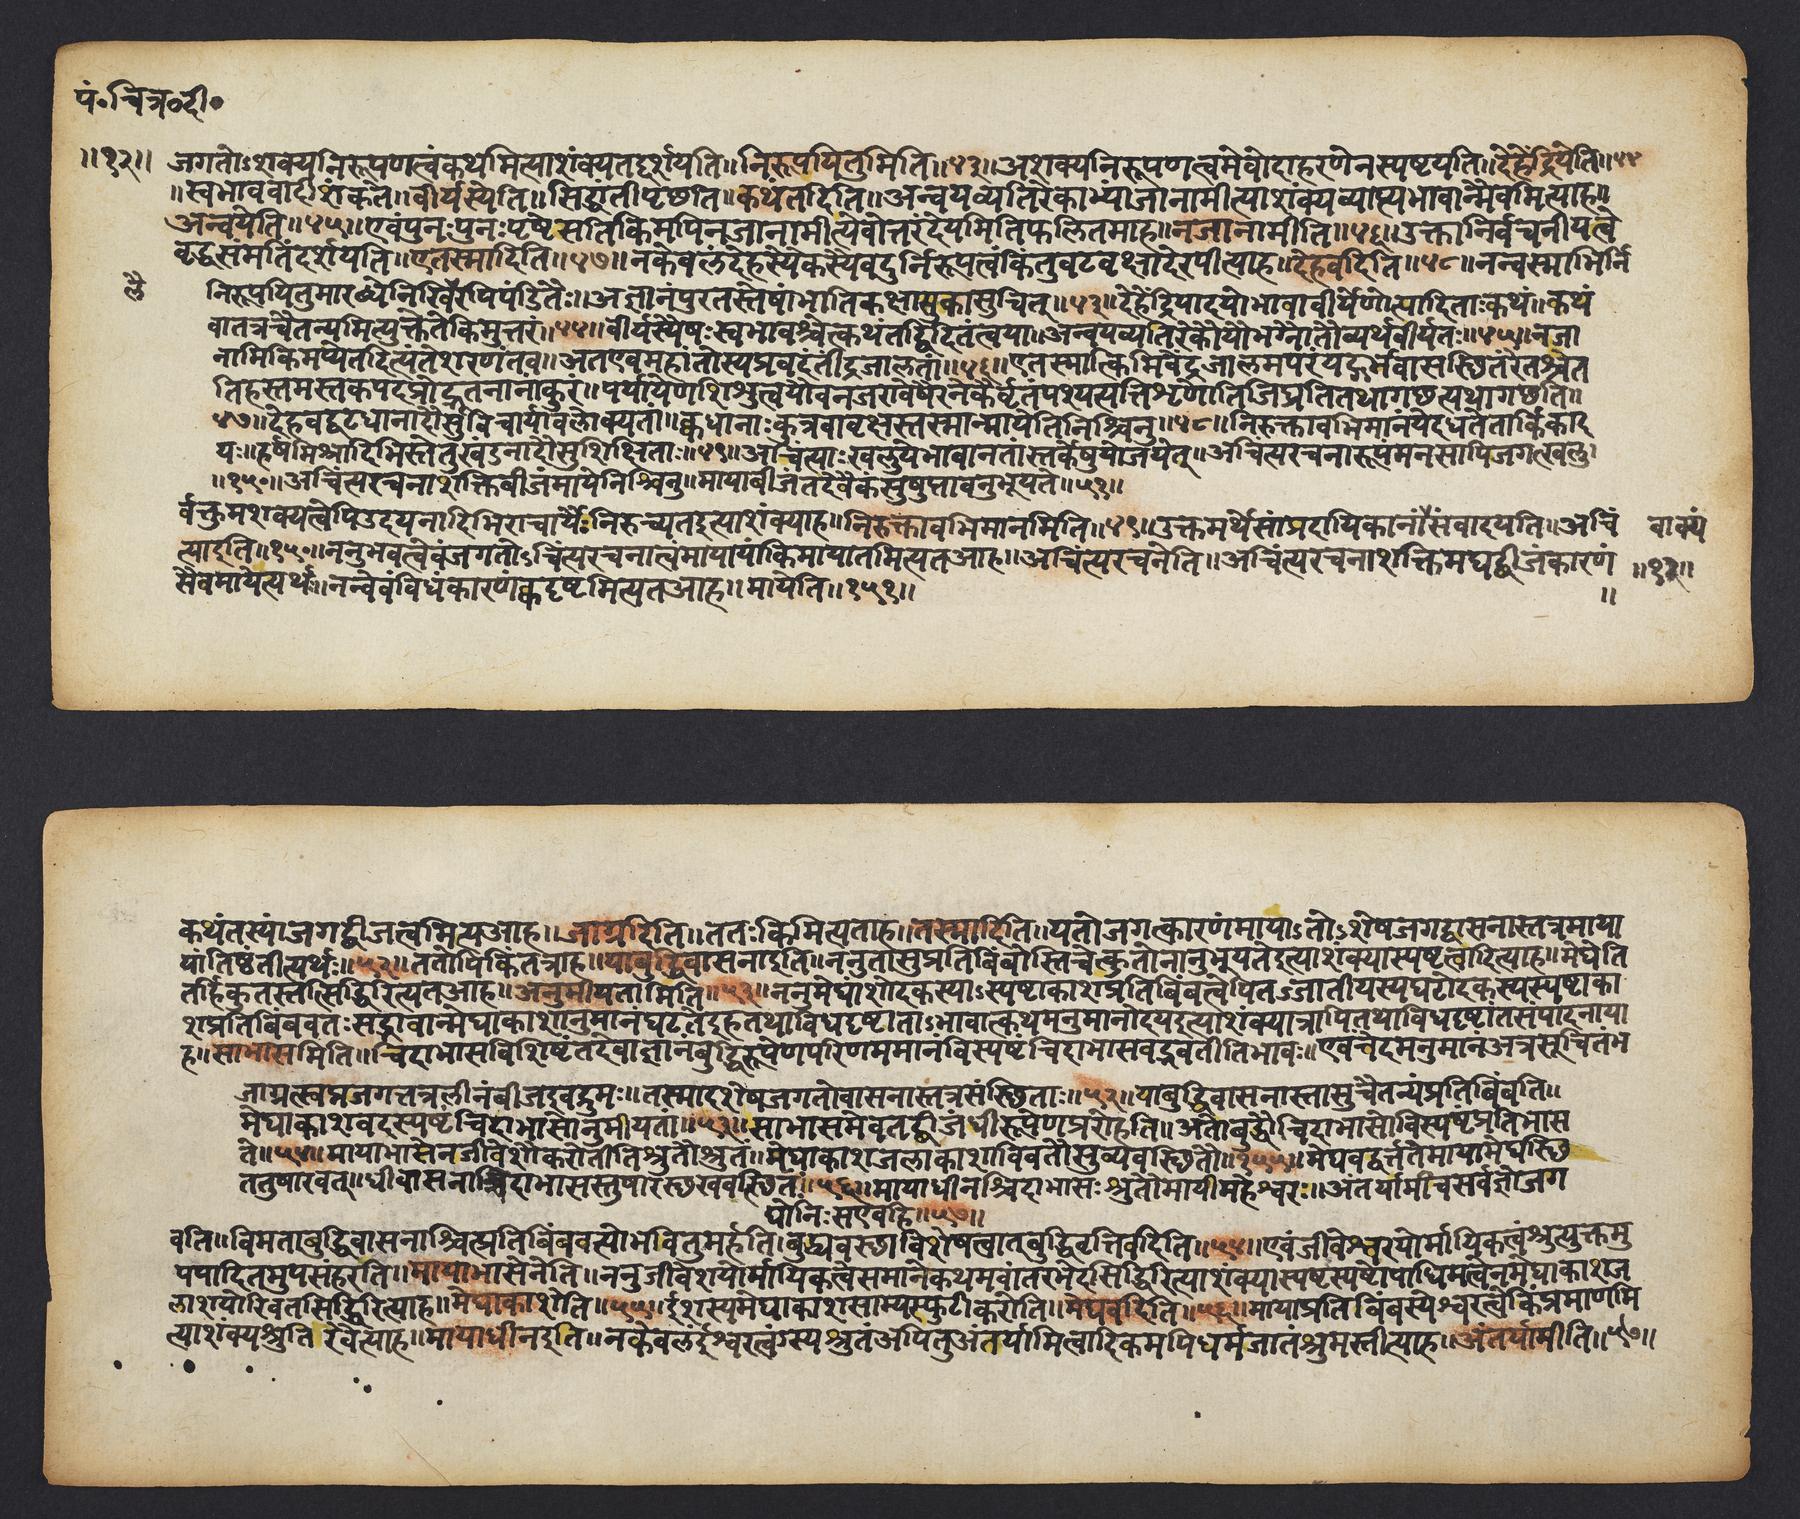 पं॰चित्र॰दी॰
॥१२॥ जगतोऽशक्यनिरूपणत्वंकथमित्याशंक्यतदृर्शयति॥निरूपयितुमिति॥४३॥अशक्यनिरूपणत्वमेवोदाहरणेनस्पष्टयति॥देहेंद्रियेति॥४४
॥स्वभाववादीशंकते॥वीर्यस्येति॥सिद्धांतीपृछति॥कथंतदिति॥अन्वयव्यतिरेकाभ्याजानामीत्याशंक्यव्याप्त्यभावान्मैवमित्याह॥
अन्वयेति॥४५॥एवंपुनःपुनःपृष्टेसतिकिमपिनजानामीत्येवोत्तरंदेयमितिफलितमाह॥नजानामीति॥४६॥उक्तानिर्वचनीयत्वे
वृद्धसंमतिंदर्शयति॥एतस्मादिति॥४७॥नकेवलंदेहस्यैकस्यैवदुर्निरूप्यत्वंकिंतुवटवृक्षादेरपीत्याह॥देहवदिति॥४८॥नन्वस्माभिर्नि
लै
निरूपयितुमारब्धेनिखिलैरपिपंडितैः॥अज्ञानंपुरतस्तेषांभातिकक्षासुकासुचित्॥४३॥देहेंद्रियादयोभावावीर्येणोत्पादिताःकथं॥कथं
वातत्रचैतन्यमित्युक्तेतेकिमुत्तरं॥४४॥वीर्यस्यैषःस्वभावश्चेत्कथंतद्विदितंत्वया॥अन्वयव्यतिरेकौयौभग्नौतौव्यर्थवीर्यतः॥४५॥नजा
नामिकिमप्येतदित्यतेशरणंतव॥अतएवमहांतोस्यप्रवदंतींद्रजालतां॥४६॥एतस्मात्किमिवेंद्रजालमपरंयद्गर्भवासस्छितंरेतश्चेत
तिहस्तमस्तकपदप्रोद्भूतनानांकुरं॥पर्यायेणशिशुत्वयौवनजरावेषैरनेकैर्वृतंपश्यत्यत्तिशृणोतिजिघ्रतितथागछत्यथागछति॥
४७॥देहवद्वटधानादौसुविचार्यावलोक्यतां॥क्वधानाःकुत्रवावृक्षस्तस्मान्मायेतिनिश्चिनु॥४८॥निरुक्तावभिमानंयेदधतेतार्किकाद
यः॥हर्षमिश्रादिभिस्तेतुखंडनादौसुशिक्षिताः॥४९॥अचिंत्याःखलुयेभावानतांस्तर्केषुयोजयेत्॥अचिंत्यरचनारूपंमनसापिजगत्खलु।
॥१५०॥अचिंत्यरचनाशक्तिबीजंमायेनिश्चिनु॥मायाबीजंतदेवैकंसुषुप्तावनुभूयते॥५१॥
र्वक्तुमशक्यत्वेपिउदयनादिभिराचार्यैःनिरुच्यतइत्याशंक्याह॥निरुक्तावभिमानमिति॥४९॥उक्तमर्थेसांप्रदायिकानांसंवादयति॥अचिं वाक्यं
त्याइति॥१५०॥ननुभवत्वेवंजगतोऽचिंत्यरचनात्वंमायायांकिमायातमित्यतआह॥अचिंत्यरचनेति॥अचिंत्यरचनाशक्तिमघद्वीजंकारणं ॥१२॥
सैवमायेत्यर्थः॥नन्वेवंविधंकारणंक्वदृष्टमित्यतआह॥मायेति॥१५१॥ ॥
कथंतस्यांजगद्बीजत्वमित्यआह॥जाग्रदिति॥ततःकिमित्यताह॥तस्मादिति॥यतोजगत्कारणंमायाऽतोऽशेषजगद्वासनास्तत्रमाया
यांतिष्ठंतीत्यर्थः॥५२॥ततोपिकिंतत्राह॥याबुद्धिवासनाइति॥ननुतासुप्रतिबिंबोस्तिचेत्कुतोनानुभूयतेइत्याशंक्यास्पष्टत्वादित्याह॥मेघेति
तर्हिकुतस्तत्सिद्धिरित्यतआह॥अनुमीयतामिति॥५३॥ननुमेघांशोदकस्याऽस्पष्टाकाशप्रतिबिंबत्वेपितज्जातीयस्यघटोदकस्यस्पष्टाका
शप्रतिबिंबवतःसद्भावान्मेघाकाशानुमानंघटतेइहतथाविधदृष्टांताऽभावात्कथमनुमानोदयइत्याशंक्यात्रापितथाविधदृष्टांतसंपादनाया
ह॥साभासमिति॥चिदाभासविशिष्टंतदेवाज्ञानंबुद्धिरूपेणपरिणममानंविस्पष्टंचिदाभासवद्भवतीतिभावः॥एवंचेदमनुमानंअत्रसूचितंभ
जाग्रत्स्वप्नजगत्तत्रलीनंबीजइवद्रुमः॥तस्मादशेषजगतोवासनास्तत्रसंस्छिताः॥५२॥याबुद्धिवासनास्तासुचैतन्यंप्रतिबिंबति॥
मेघाकाशवदस्पष्टंचिदाभासोनुमीयतां॥५३॥साभासमेवतद्बीजंधीरूपेणप्ररोहति॥अतोबुद्धौचिदाभासोविस्पष्टंप्रतिभास
ते॥५४॥मायाभासेनजीवेशौकरोतीतिश्रुतौश्रुतं॥मेघाकाशजलाकाशाविवतौसुव्यवस्छितौ॥१५५॥मेघवद्वर्त्ततेमायामेघस्छि
ततुषारवत्॥धीवासनाश्चिदाभासस्तुषारस्छखवत्स्छितः॥५६॥मायाधीनश्चिदाभासःश्रुतोमायीमहेश्वरः॥अंतर्यामीचसर्वज्ञोजग
द्योनिःसएवहि॥५७॥
वति॥विमताबुद्धिवासनाश्चित्प्रतिबिंबवत्योभवितुमर्हंति।बुद्ध्यवस्छाविशेषत्वात्बुद्धिवृत्तिवदिति॥५४॥एवंजीवेश्वरयोर्मायिकत्वंश्रुत्युक्तमु
पपादितमुपसंहरति॥मायाभासेनेति॥ननुजीवेशयोर्मायिकत्वेसमानेकथमवांतरभेदसिद्धिरित्याशंक्यास्पष्टस्पष्टोपाधिमत्वेनमेघाकाशज
लाशयोरिवतसिद्धिरित्याह॥मेघाकाशेति॥५५॥ईशस्यमेघाकाशसाम्यंस्फुटीकरोति॥मेघवदिति॥५६॥मायाप्रतिबिंबस्येश्वरत्वेकिंप्रमाणमि
त्याशंक्यश्रुतिरेवेत्याह॥मायाधीनइति॥नकेवलंईश्वरत्वंऽस्यश्रुतंअपितुअंतर्यामित्वादिकमपिधर्मजातंश्रुमस्तीत्याह॥अंतर्यामीति॥५७॥